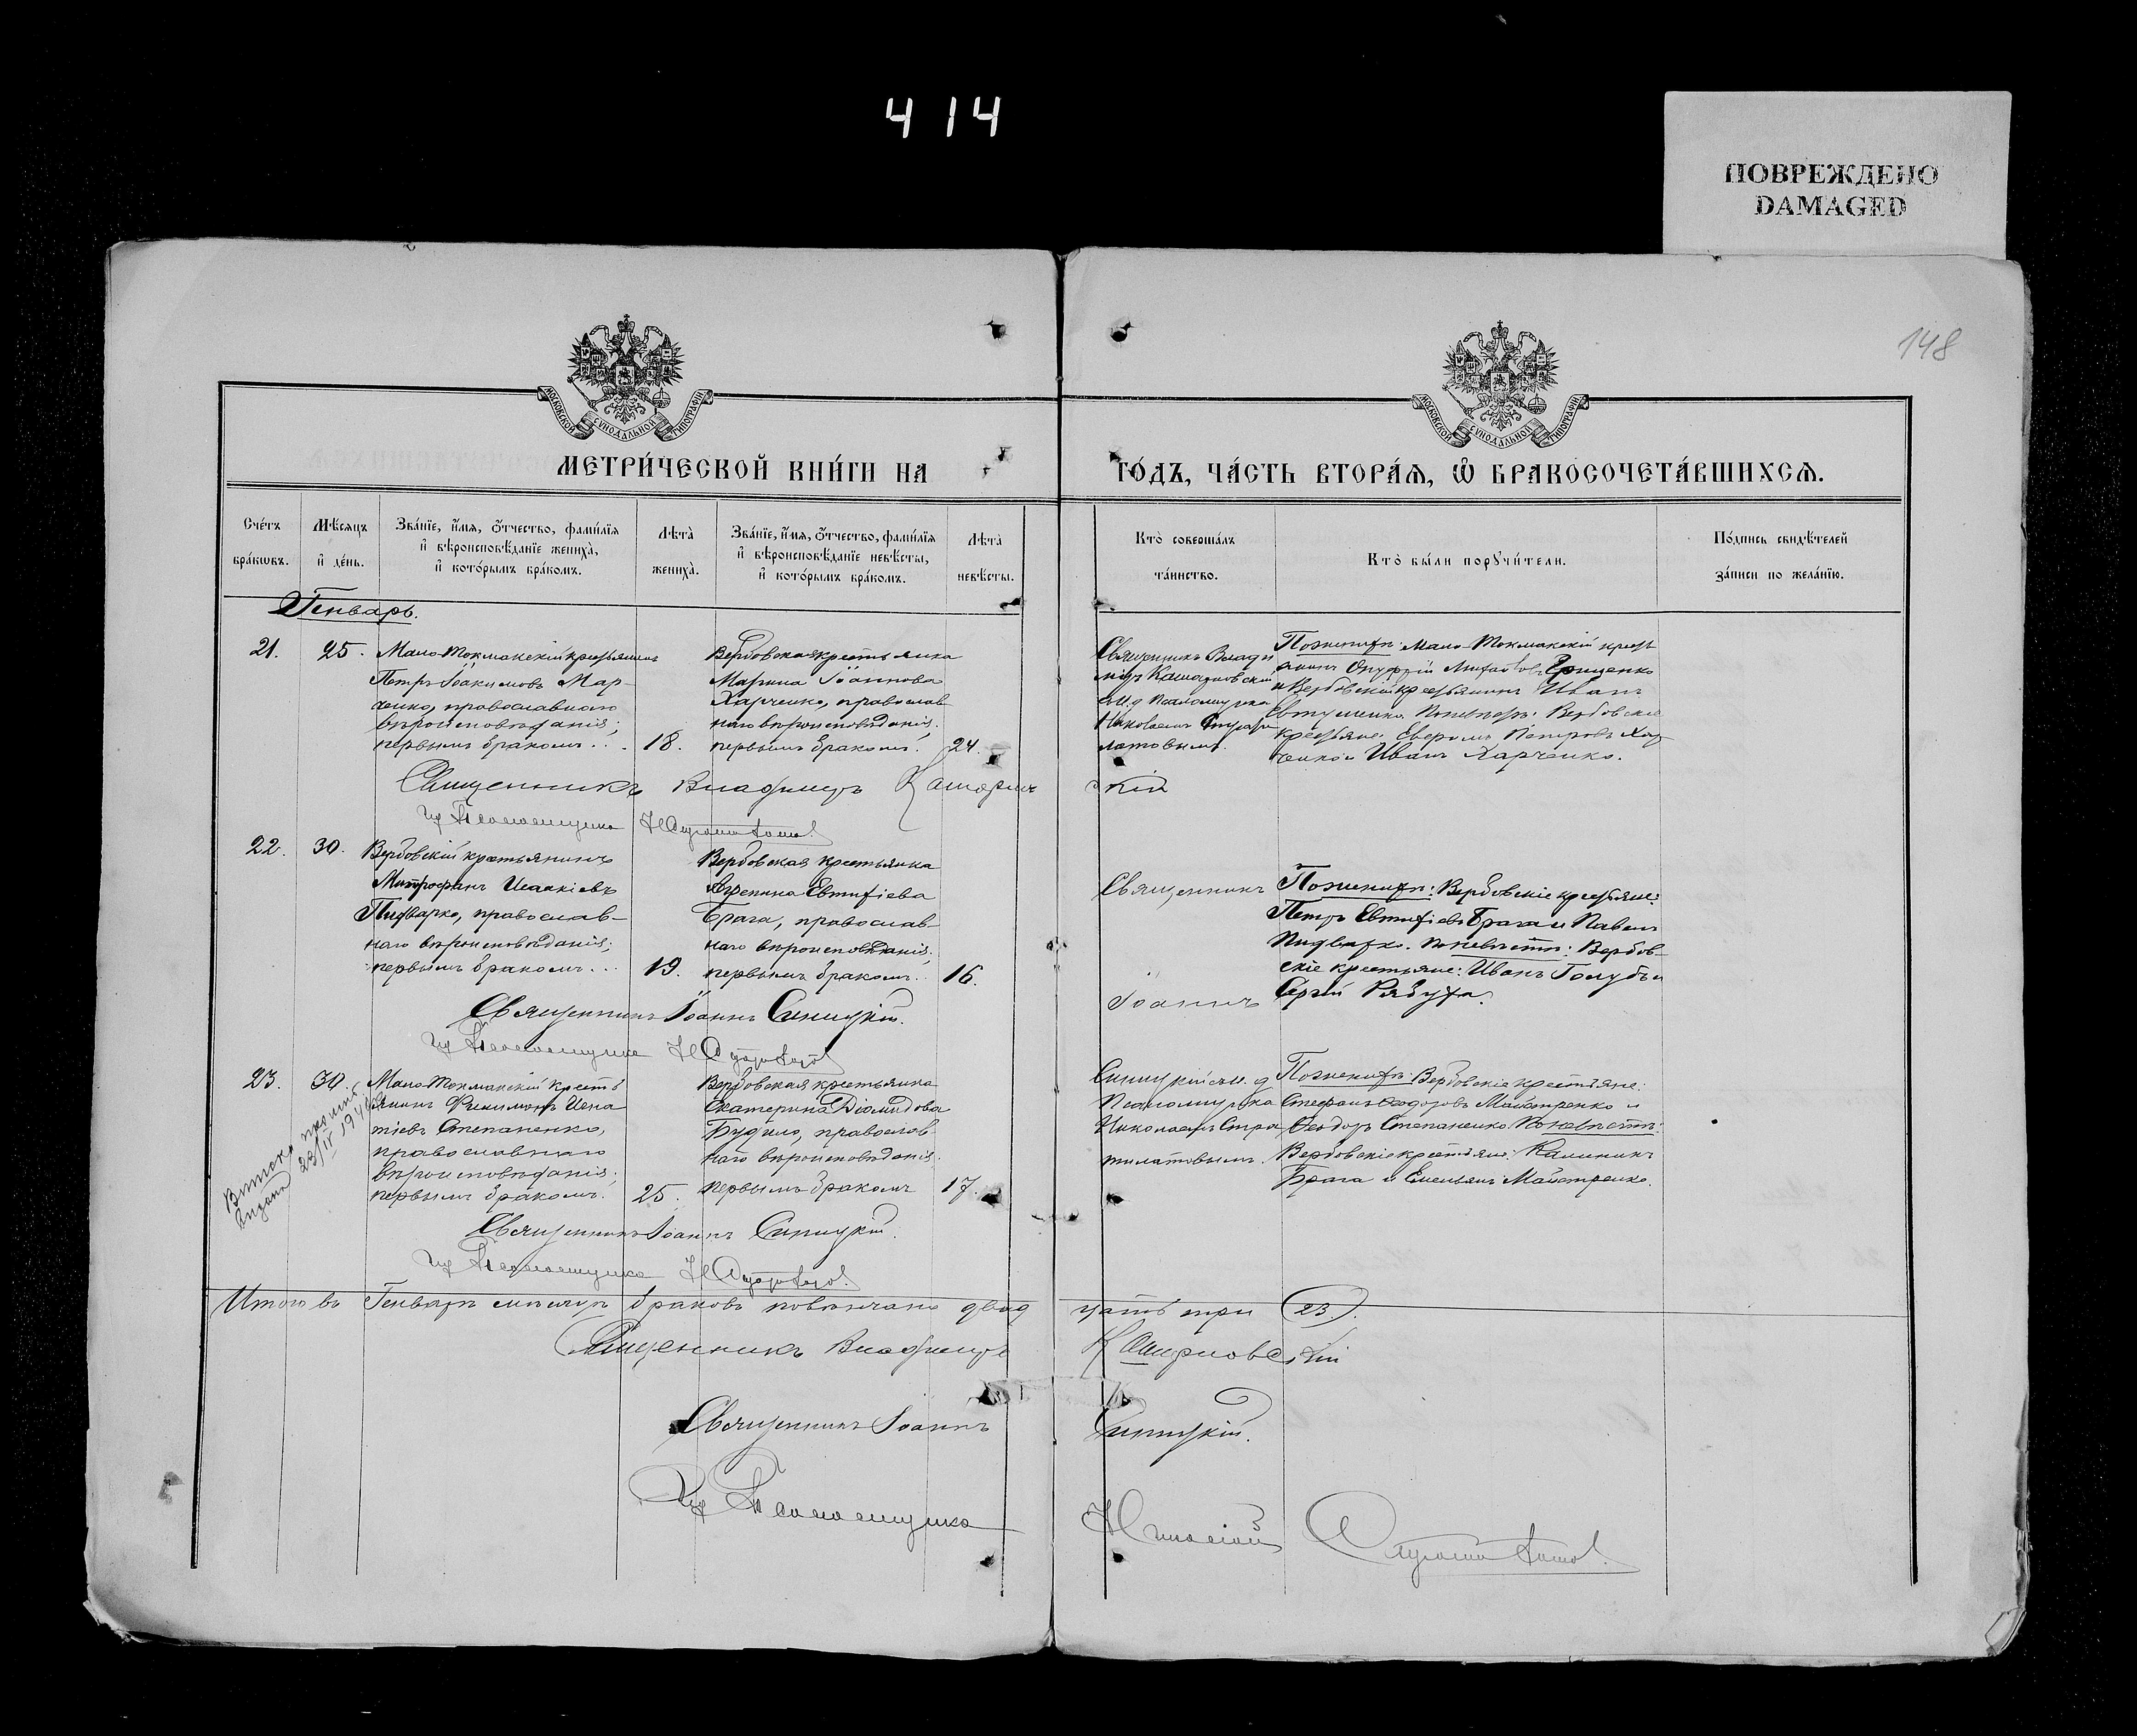 414
ПОВРЕЖДЕНО
DAMAGED
148
МОСКОВСКОЙ СѴНОДАЛЬНОЙ ТИПОГРАФІИ
МОСКОВСКОЙ СѴНОДАЛЬНОЙ ТИПОГРАФІИ
МЕТРИ́ЧЕСКОЙ КНИ́ГИ НА
ГО́ДЪ, ЧА́СТЬ ВТОРА́Ѧ, Ѽ БРАКОСОЧЕТА́ВШИХСѦ.
Сче́тъ
бра́кѡвъ.
Мѣ́сѧцъ
и҆ де́нь.
Зва́нїе, и҆́мѧ, ѻ҆́тчество, фамі́лїѧ
и҆ вѣроисповѣ́данїе жениха̀,
и҆ кото́рымъ бра́комъ.
Лѣта̀
жениха̀.
Зва́нїе, и҆́мѧ, ѻ҆́тчество, фамі́лїѧ
и҆ вѣроисповѣ́данїе невѣ́сты,
и҆ кото́рымъ бра́комъ.
Лѣта̀
невѣ́сты.
Кто̀ соверша́лъ
та́инство.
Кто̀ бы́ли порꙋчи́тели.
По́дпись свидѣ́телей
за́писи по жела́нїю.
Генварь.
21.
25.
Мало-Токмакскій крестьянинъ
Петръ Іоакимовъ Мар-
ченко, православнаго
вѣроисповѣданія;
первымъ бракомъ...
18.
Вербовская крестьянка
Марина Іоаннова
Харченко, православ
наго вѣроисповѣданія.
первымъ бракомъ.
24.
Священникъ Влади
міръ
съ и. д. Псаломщика
Николаемъ Страти
латовымъ.
Поженихѣ: Мало-Токмакскій крест
янинъ Онуфрій Грищенко
и Вербовскій крестьянинъ Иванъ
Евтушенко. Поневѣстѣ: Вербовскіе
крестьяне: Петровъ Хар
ченко и Иванъ Харченко.
Священникъ Владиміръ
ид Псаломщика НСтратилатовъ
22.
30.
Вербовскій крестьянинъ
Митрофанъ Исаакіевъ
Пидварко, православ-
наго вѣроисповѣданія;
первымъ бракомъ...
19.
Вербовская крестьянка
Агрепина Евтихіева
Брага, православ-
наго вѣроисповѣданія.
первымъ бракомъ..
16.
Священникъ
Іоаннъ
Поженихѣ: Вербовскіе крестьяне:
Петръ Евтихіевъ Брага и Павелъ
Пидварко. Поневѣстѣ: Вербов-
скіе крестьяне: Иванъ Голубъ и
Сергій Рябуха.
Священникъ Іоаннъ Синицкій.
ид Псаломщика НСтратилатовъ
23.
30.
Мало-Токмакскій кресть
янинъ Филимонъ Игна
тіевъ Степаненко,
православнаго
вѣроисповѣданія;
первымъ бракомъ.
25.
Вербовская крестьянка
Екатерина Діомидова
Будило, православ
наго вѣроисповѣданія.
первымъ бракомъ
17.
Синицкій съ и. д
Псаломщика
Николаемъ Стра
тилатовымъ.
Поженихѣ: Вербовскіе крестьяне:
Стефанъ Ѳеодоровъ Майстренко и
Ѳеодоръ Степаненко. Поневѣстѣ:
Вербовскіе крестьяне: Калиникъ
Брага и Емельянъ Майстренко.
23/IV
Священникъ Іоаннъ Синицкій.
ид Псаломщика НСтратилатовъ.
Итого въ Генварѣ мѣсяцѣ браковъ повѣнчано двад
цать три (23).
Священникъ Владиміръ
Священникъ Іоаннъ Синицкій.
ид Псаломщика Николай Стратилатовъ.